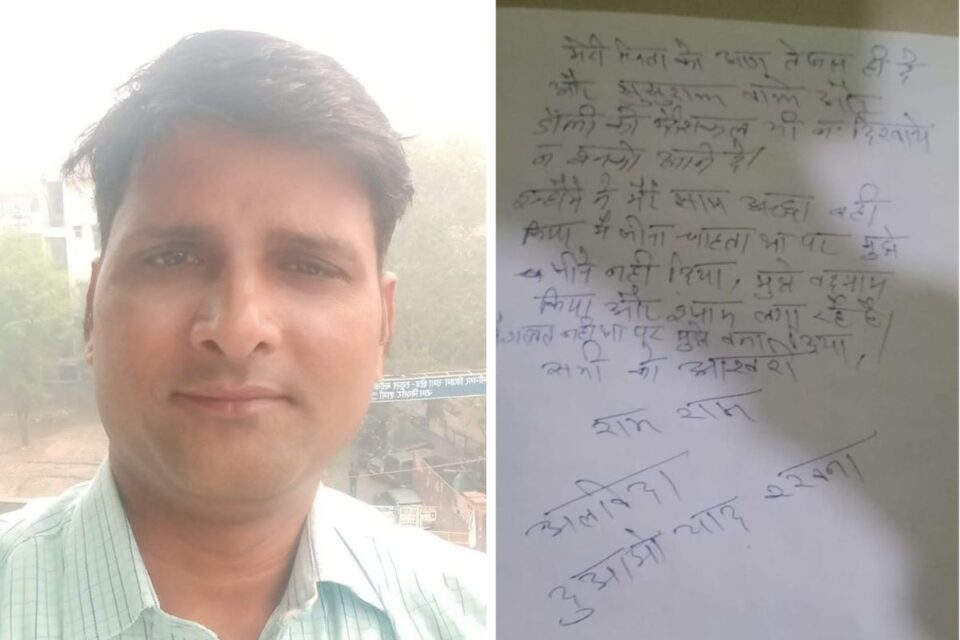 मेरी चिता को आग तेजस ही दे
और सुसराल वाले और
डॉली को शक्ल भी न दिखाये
न इनको आने दे।
इन्होने ने मेरे साथ अच्छा नही
किया मै जीना चाहता था पर मुझे
जीने नही दिया, मुझे बदनाम
किया और लगा रहे है।
गलत नही था पर मुझे बना दिया,
सभी को आखरी
राम राम
अलविदा
दुआओ याद रखना